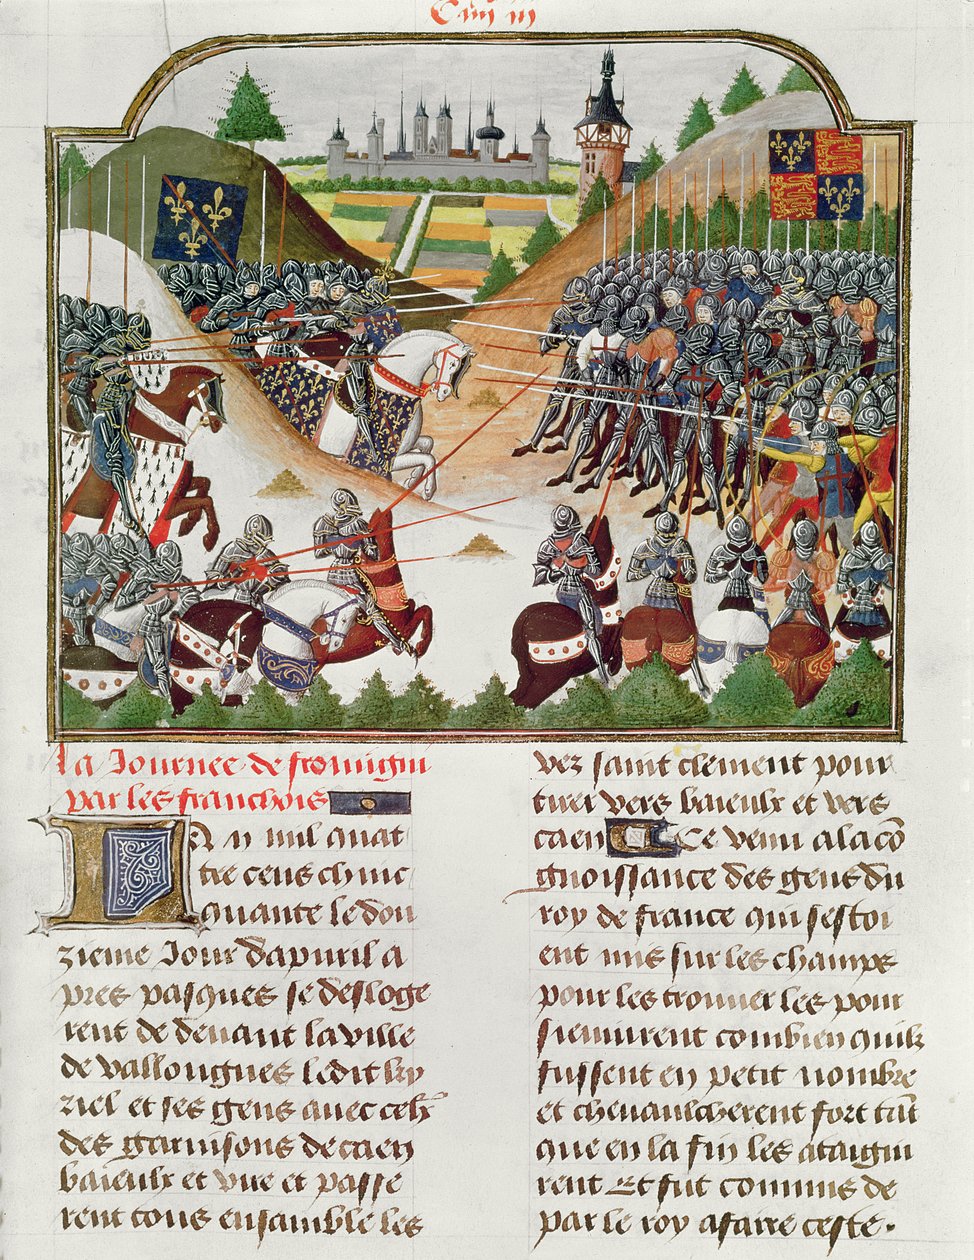 La Journee de fromigni
par les franchois
En lan mil quat
tre cens chinc
quante le dou
zieme Jour dapuril a
pres pasques se desloge
rent de deuant la ville
de vallongnes ledit ky
riel et ses gens auec celx
des garnisons de caen
baieulx et vire et passe
rent tous ensamble les
vez saint clement pour
tirer vers baieulx et vers
caen Ce venu a la cō
gnoissance des gens du
roy de france qui sestoi
ent mis sur les champs
pour les trouuer les pour
sieuuirent combien quilz
fussent en petit nombre
et cheuaulcherent fort tāt
que en la fin les ataigni
rent Et fut commis de
par le roy a faire ceste